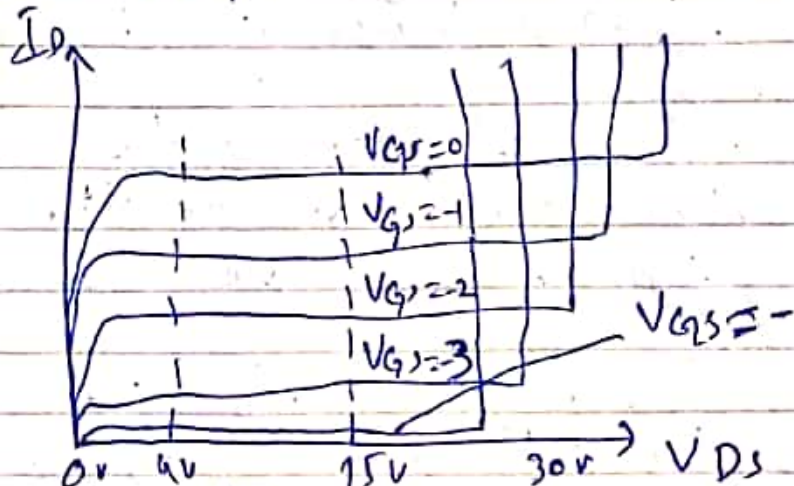 ID
VGS=0
VGS=-1
VGS=-2
VGS=-3
VGS=-
0v 4v 15v 30v VDS